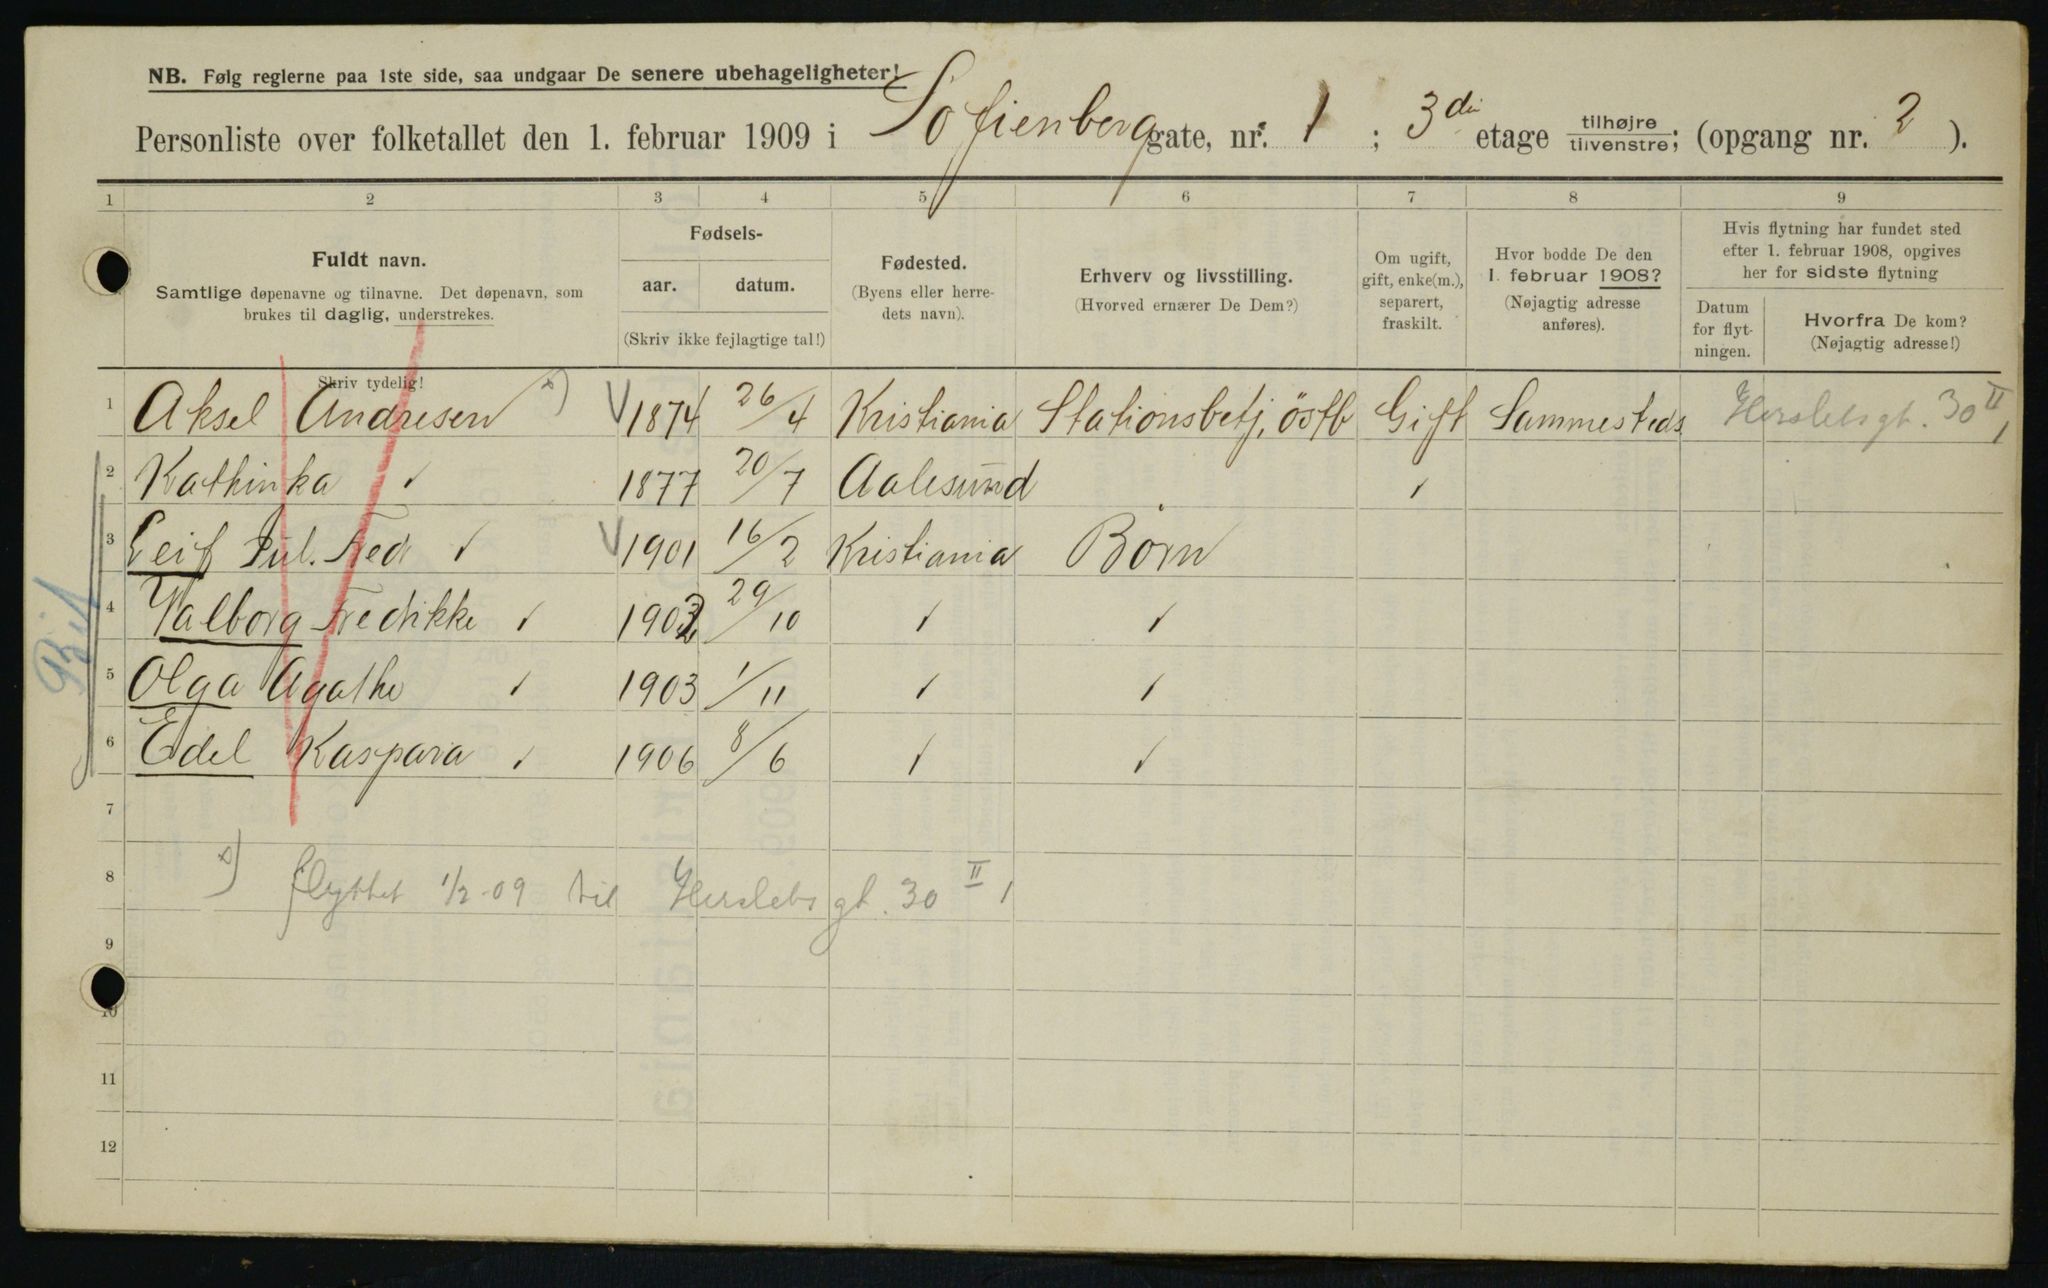 NB. Følg reglerne paa 1ste side, saa undgaar De senere ubehageligheter!
Personliste over folketallet den 1. februar 1909 i Sofienberggate, nr. 1 ; 3die etage tilhøjre tilvenstre; (opgang nr. 2 ).
1 2 3 4 5 6 7 8 9
Fuldt navn.
Samtlige døpenavne og tilnavne. Det døpenavn, som
brukes til daglig, understrekes.
Skriv tydelig!
Fødsels-
aar. datum.
(Skriv ikke fejlagtige tal!)
Fødested.
(Byens eller herre-
dets navn).
Erhverv og livsstilling.
(Hvorved ernærer De Dem?)
Om ugift,
gift, enke(m.),
separert,
fraskilt.
Hvor bodde De den
1. februar 1908?
(Nøjagtig adresse
anføres).
Hvis flytning har fundet sted
efter 1. februar 1908, opgives
her for sidste flytning
Datum
for flyt-
ningen.
Hvorfra De kom?
(Nøjagtig adresse!)
1 Aksel Andresen 1874 26/4 Kristiania Stationsbetj. östb Gift Sammesteds Herslebsgt. 30 II 1
2 Kathinka 1877 20/7 Aalesund
3 Leif Jul. Fedr 1901 16/2 Kristiania Börn
4 Valborg Fredrikke 1902 29/10
5 Olga Agathe 1903 1/11
6 Edel Kaspara 1906 8/6
7
8 flyttet 1/2-09 til Herslebsgt. 30 II 1
9
10
11
12